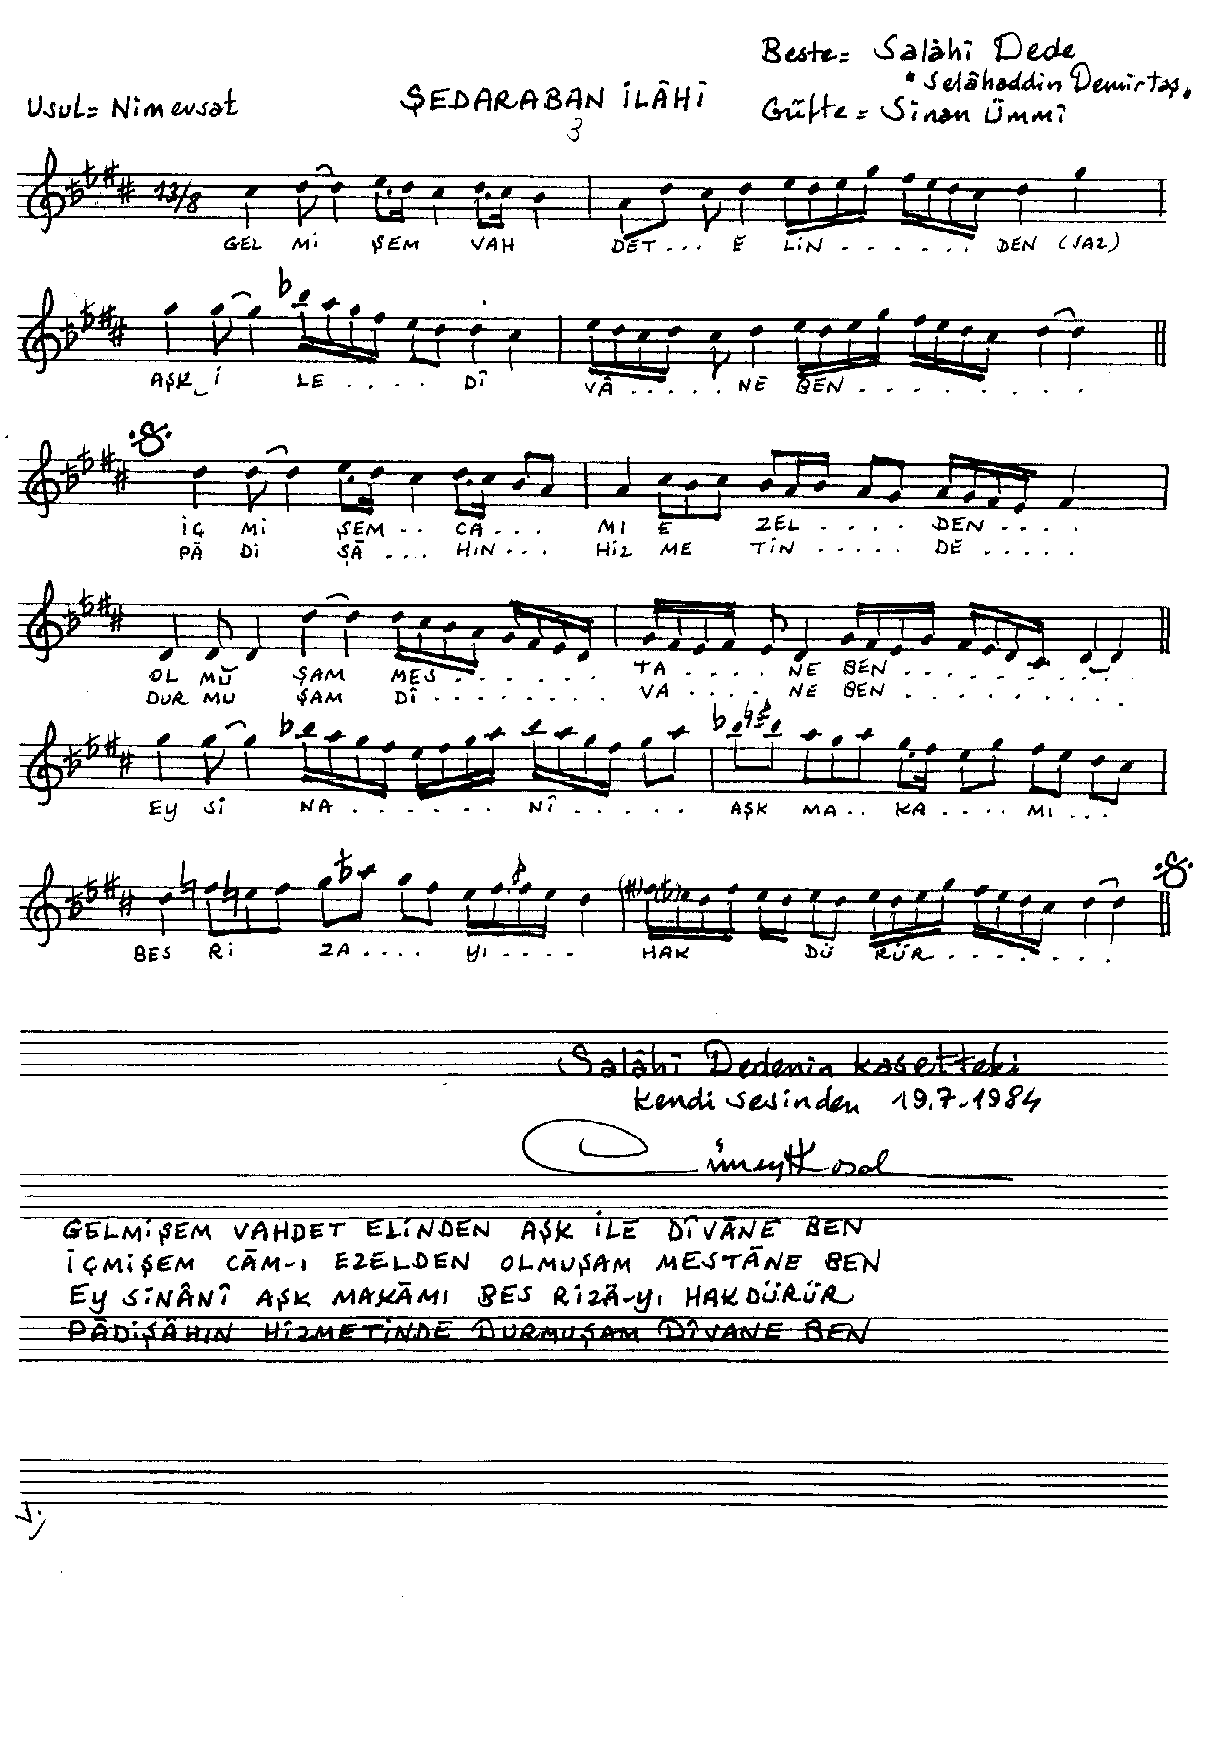 Beste= Salâhî Dede
* Selâhaddin Demirtaş.
Usul= Nim evsat
ŞEDARABAN İLÂHİ
Güfte= Sinan Ümmî
3
13/8
GEL Mİ ŞEM VAH DET... E LİN...... DEN (SAZ)
AŞK İ LE .... DÎ VÂ ..... NE BEN ........
İÇ Mİ ŞEM.. CA... MI E ZEL .... DEN ....
PÂ Dİ ŞÂ ... HIN... HİZ ME TİN ..... DE .....
OL MU ŞAM MES ....... TA .... NE BEN ........
DUR MU ŞAM DÎ ........ VA .... NE BEN ........
EY Sİ NA ...... NÎ ..... AŞK MA.. KA .... MI ...
BES Rİ ZA .... YI .... HAK DÜ RÜR .......
Salâhî Dedenin kasetteki
kendi sesinden 19.7.1984
Cüneyt Kosal
GELMİŞEM VAHDET ELİNDEN AŞK İLE DÎVÂNE BEN
İÇMİŞEM CÂM-I EZELDEN OLMUŞAM MESTÂNE BEN
EY SİNÂNÎ AŞK MAKÂMI BES RİZÂ-YI HAKDÜRÜR
PÂDİŞÂHIN HİZMETİNDE DURMUŞAM DÎVANE BEN